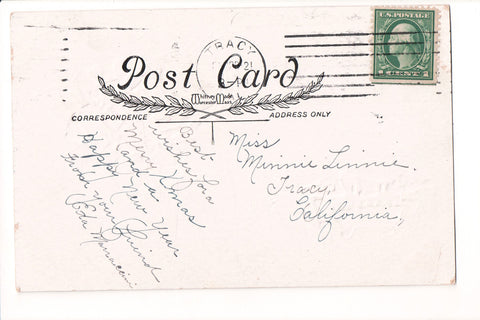 TRACY
21
U.S. POSTAGE
Post Card
CORRESPONDENCE
ADDRESS ONLY
Best
wishes for a
Merry Xmas
and a
Happy New Year
From your friend
Eda
Miss
Minnie Linnie.
Tracy,
California,